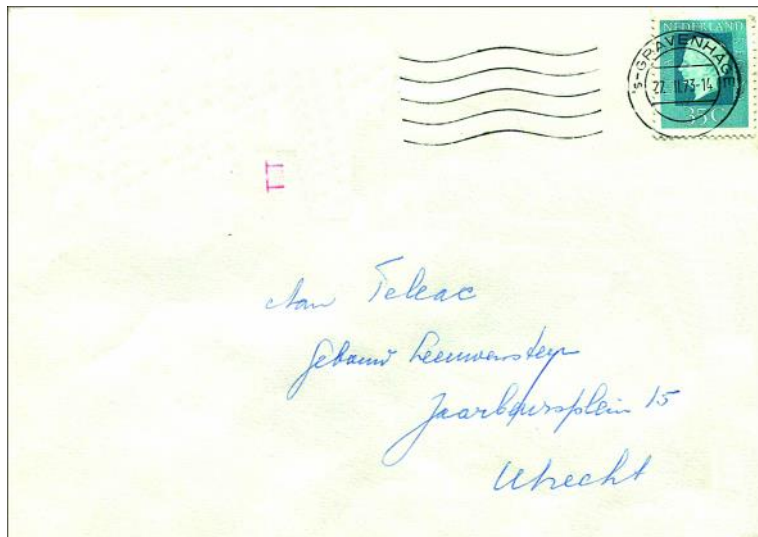 NEDERLAND
's-GRAVENHAGE
22.II.73-14
35 C
Aan Teleac
Gebouw Leeuwensteyn
Jaarbeursplein 15
Utrecht